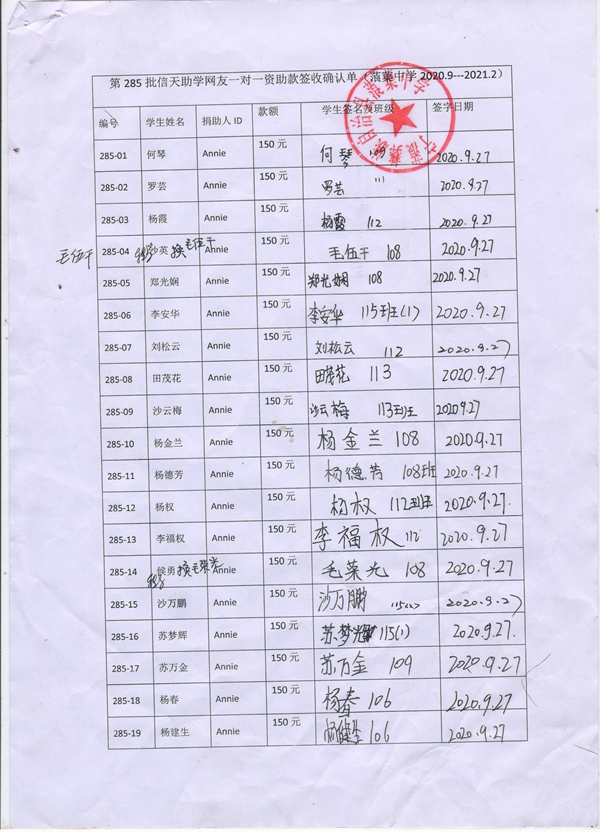 第 285 批信天助学网友一对一资助款签收确认单（蒗蕖中学 2020.9---2021.2）
编号 学生姓名 捐助人 ID 款额 学生签名及班级 签字日期
285-01 何琴 Annie 150 元 何琴 109 2020.9.27
285-02 罗芸 Annie 150 元 罗芸 111 2020.9.27
285-03 杨霞 Annie 150 元 杨霞 112 2020.9.27
毛伍干 285-04 沙英 换毛伍干 Annie 150 元 毛伍干 108 2020.9.27
285-05 郑光娴 Annie 150 元 郑光娴 108 2020.9.27
285-06 李安华 Annie 150 元 李安华 115班(1) 2020.9.27
285-07 刘松云 Annie 150 元 刘松云 112 2020.9.27
285-08 田茂花 Annie 150 元 田茂花 113 2020.9.27
285-09 沙云梅 Annie 150 元 沙云梅 113班 2020.9.27
285-10 杨金兰 Annie 150 元 杨金兰 108 2020.9.27
285-11 杨德芳 Annie 150 元 杨德芳 108班 2020.9.27
285-12 杨权 Annie 150 元 杨权 112班 2020.9.27.
285-13 李福权 Annie 150 元 李福权 112 2020.9.27
285-14 候勇 换毛荣光 Annie 150 元 毛荣光 108 2020.9.27
285-15 沙万鹏 Annie 150 元 沙万鹏 2020.9.27
285-16 苏梦辉 Annie 150 元 苏梦辉 115(1) 2020.9.27.
285-17 苏万金 Annie 150 元 苏万金 109 2020.9.27
285-18 杨春 Annie 150 元 杨春 106 2020.9.27
285-19 杨建生 Annie 150 元 杨建生 106 2020.9.27